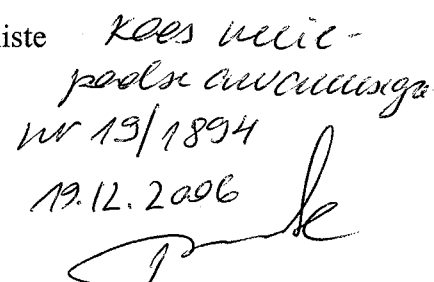 iste Koos meie-
poolse arvamusega
nr 19/1894
19.12.2006